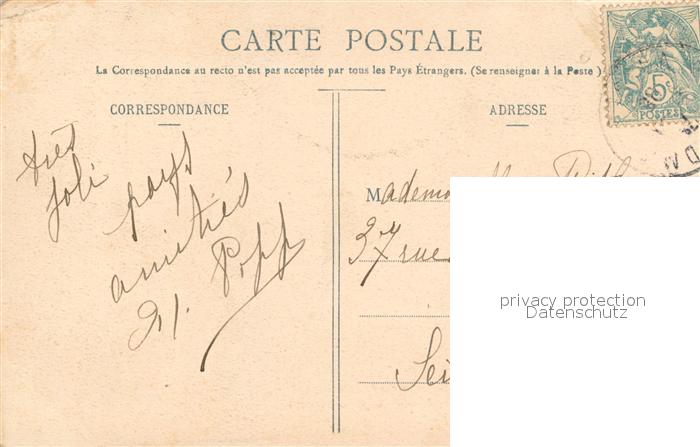 CARTE POSTALE
La Correspondance au recto n'est pas acceptée par tous les Pays Étrangers. (Se renseigner à la Poste)
CORRESPONDANCE
très
joli pays
amitiés
Popp
ADRESSE
Mademo
37 rue
Sei
5c
POSTES
privacy protection
Datenschutz